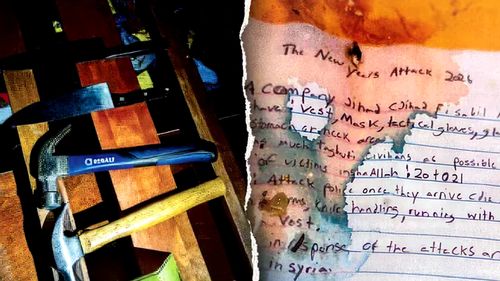 KOBALT
The New Years Attack 2026
Jihad (Jihad Fisabil
have: Vest, Mask, tactical gloves,
stomach or neck area
much taghut, civilians as possible
of victims inshaAllah: 20 to 21
Attack police once they arrive (die
arms, knife handling, running with
a Vest.
of the attacks
in syria.